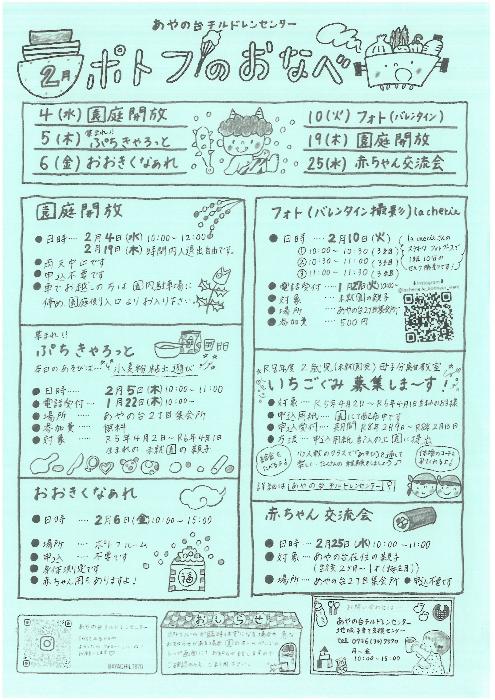 あやの台チルドレンセンター
2月 ポトフのおなべ
4(水) 園庭開放
5(木) 集まれ!! ぷちきゃろっと
6(金) おおきくなぁれ
10(火) フォト(バレンタイン)
19(木) 園庭開放
25(水) 赤ちゃん交流会
園庭開放
● 日時 … 2月4日(水) 10:00~12:00
2月19日(木) 時間内入退出自由です。
● 雨天中止です
● 申込不要です
● 車でお越しの方は園内駐車場に
停め、園庭側入口よりお入り下さい
集まれ!!
ぷちきゃろっと
今日のあそびは… 小麦粉粘土遊び
● 日時 … 2月5日(木) 10:00~11:00
● 電話受付 … 1月22日(木) 10:00~
● 場所 … あやの台2丁目集会所
● 参加費 … 無料
● 対象 … R5年4月2日~R6年4月1日
生まれの未就園の親子
おおきくなぁれ
● 日時 … 2月6日(金) 10:00~15:00
● 場所 … ポトフルーム
● 申込 … 不要です
● 身体測定です
● 赤ちゃん用もありますよ!
福
フォト(バレンタイン撮影) la cherie
● 日時 … 2月10日(火)
① 10:00~10:30 (3家族)
② 10:30~11:00 (3家族)
③ 11:00~11:30 (3家族)
● 電話受付 … 1月27日(火) 10:00~
● 対象 … 未就園の親子
● 場所 … あやの台2丁目集会所
● 参加費 … 500円
la cherieさんの
Instagram
R8年度 2歳児(未就園児) 母子分離教室
いちごぐみ 募集しま~す!
● 対象 … R5年4月2日~R6年4月1日生まれのお子様
● 申込用紙 … 園にて配布中です
● 申込受付
● 方法 … 申込用紙記入の上園に提出
詳細は あやの台チルドレンセンター
赤ちゃん交流会
● 日時 … 2月25日(水) 10:00~11:00
● 対象 … あやの台在住の親子
● 場所 … あやの台2丁目集会所 ● 申込不要です
あやの台チルドレンセンター
@AYACHIL1870
おしらせ
お問い合わせは…
あやの台チルドレンセンター
地域子育て支援センター
Tel 0736(39)7970
月~金
10:00~15:00